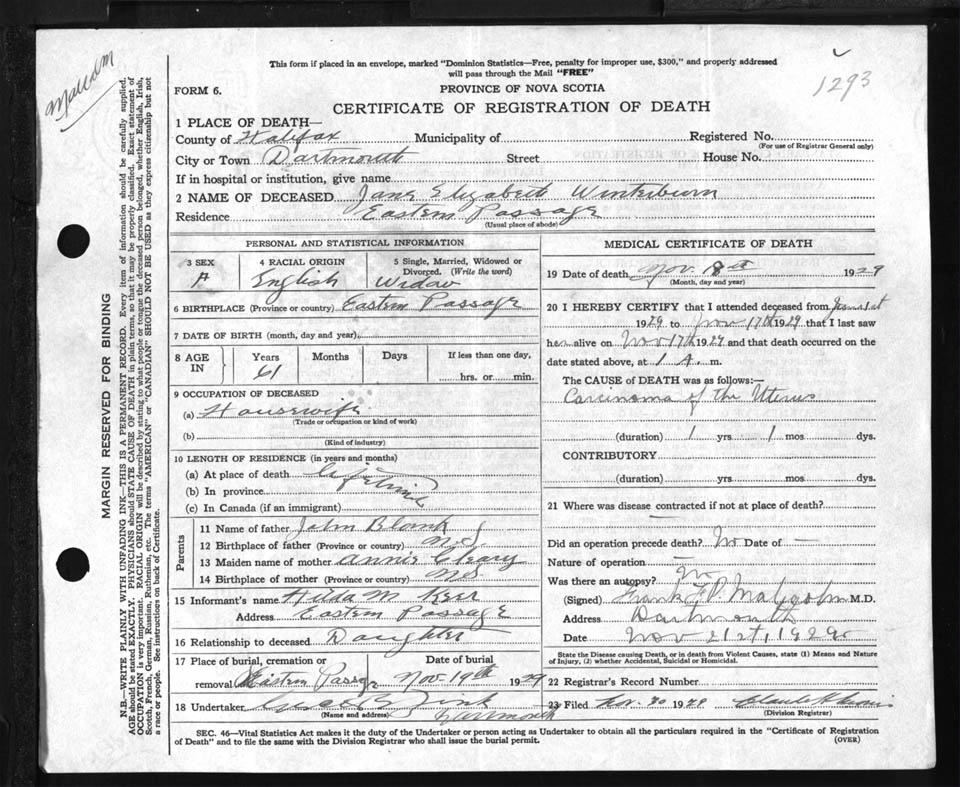 Malcolm
1293
This form if placed in an envelope, marked "Dominion Statistics—Free, penalty for improper use, $300," and properly addressed
will pass through the Mail "FREE"
FORM 6.
PROVINCE OF NOVA SCOTIA
CERTIFICATE OF REGISTRATION OF DEATH
1 PLACE OF DEATH—
County of Halifax Municipality of Registered No.
(For use of Registrar General only)
City or Town Dartmouth Street House No.
If in hospital or institution, give name
2 NAME OF DECEASED Jane Elizabeth Winterburn
Residence Eastern Passage
(Usual place of abode)
PERSONAL AND STATISTICAL INFORMATION
3 SEX
F
4 RACIAL ORIGIN
English
5 Single, Married, Widowed or
Divorced. (Write the word)
Widow
6 BIRTHPLACE (Province or country) Eastern Passage
7 DATE OF BIRTH (month, day and year)
8 AGE
IN
Years
61
Months
Days
If less than one day,
hrs. or min.
9 OCCUPATION OF DECEASED
(a) Housewife
(Trade or occupation or kind of work)
(b)
(Kind of industry)
10 LENGTH OF RESIDENCE (in years and months)
(a) At place of death lifetime
(b) In province
(c) In Canada (if an immigrant)
Parents
11 Name of father John
12 Birthplace of father (Province or country) N.S
13 Maiden name of mother Annie
14 Birthplace of mother (Province or country) N.S.
15 Informant's name Hilda M
Address Eastern Passage
16 Relationship to deceased Daughter
17 Place of burial, cremation or
removal Eastern Passage
Date of burial
Nov. 19th 1929
18 Undertaker Zink
(Name and address) Dartmouth
MEDICAL CERTIFICATE OF DEATH
19 Date of death Nov. 18th 1929
(Month, day and year)
20 I HEREBY CERTIFY that I attended deceased from
1929 to Nov 17th 1929 that I last saw
her alive on Nov 17th 1929 and that death occurred on the
date stated above, at 1 A. m.
The CAUSE OF DEATH was as follows:—
Carcinoma of the Uterus
(duration) 1 yrs 1 mos dys.
CONTRIBUTORY
(duration) yrs. mos. dys.
21 Where was disease contracted if not at place of death?
Did an operation precede death? No Date of —
Nature of operation —
Was there an autopsy? No
(Signed) Frank Malcolm M.D.
Address Dartmouth
Date Nov 21st, 1929
State the Disease causing Death, or in death from Violent Causes, state (1) Means and Nature
of Injury, (2) whether Accidental, Suicidal or Homicidal.
22 Registrar's Record Number
23 Filed Nov. 30 1929
(Division Registrar)
SEC. 46—Vital Statistics Act makes it the duty of the Undertaker or person acting as Undertaker to obtain all the particulars required in the "Certificate of Registration
of Death" and to file the same with the Division Registrar who shall issue the burial permit.
(OVER)
MARGIN RESERVED FOR BINDING
N.B.—WRITE PLAINLY WITH UNFADING INK—THIS IS A PERMANENT RECORD. Every item of information should be carefully supplied.
AGE should be stated EXACTLY. PHYSICIANS should STATE CAUSE OF DEATH in plain terms, so that it may be properly classified. Exact statement of
OCCUPATION is very important. RACIAL ORIGIN will be described by stating to what people or tongue the deceased person belonged, whether English, Irish,
Scotch, French, German, Russian, Ruthenian, etc. The terms "AMERICAN" or "CANADIAN" SHOULD NOT BE USED as they express citizenship but not
a race or people. See instructions on back of Certificate.